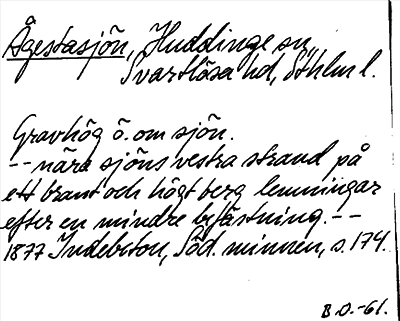 Ågestasjön, Huddinge sn,
Svartlösa hd, Sthlm l.
Gravhög ö. om sjön.
-- nära sjöns vestra strand på
ett brant och högt berg lemningar
efter en mindre befästning. --
1877 Indebetou, Söd. minnen, s. 174.
B.O.-61.